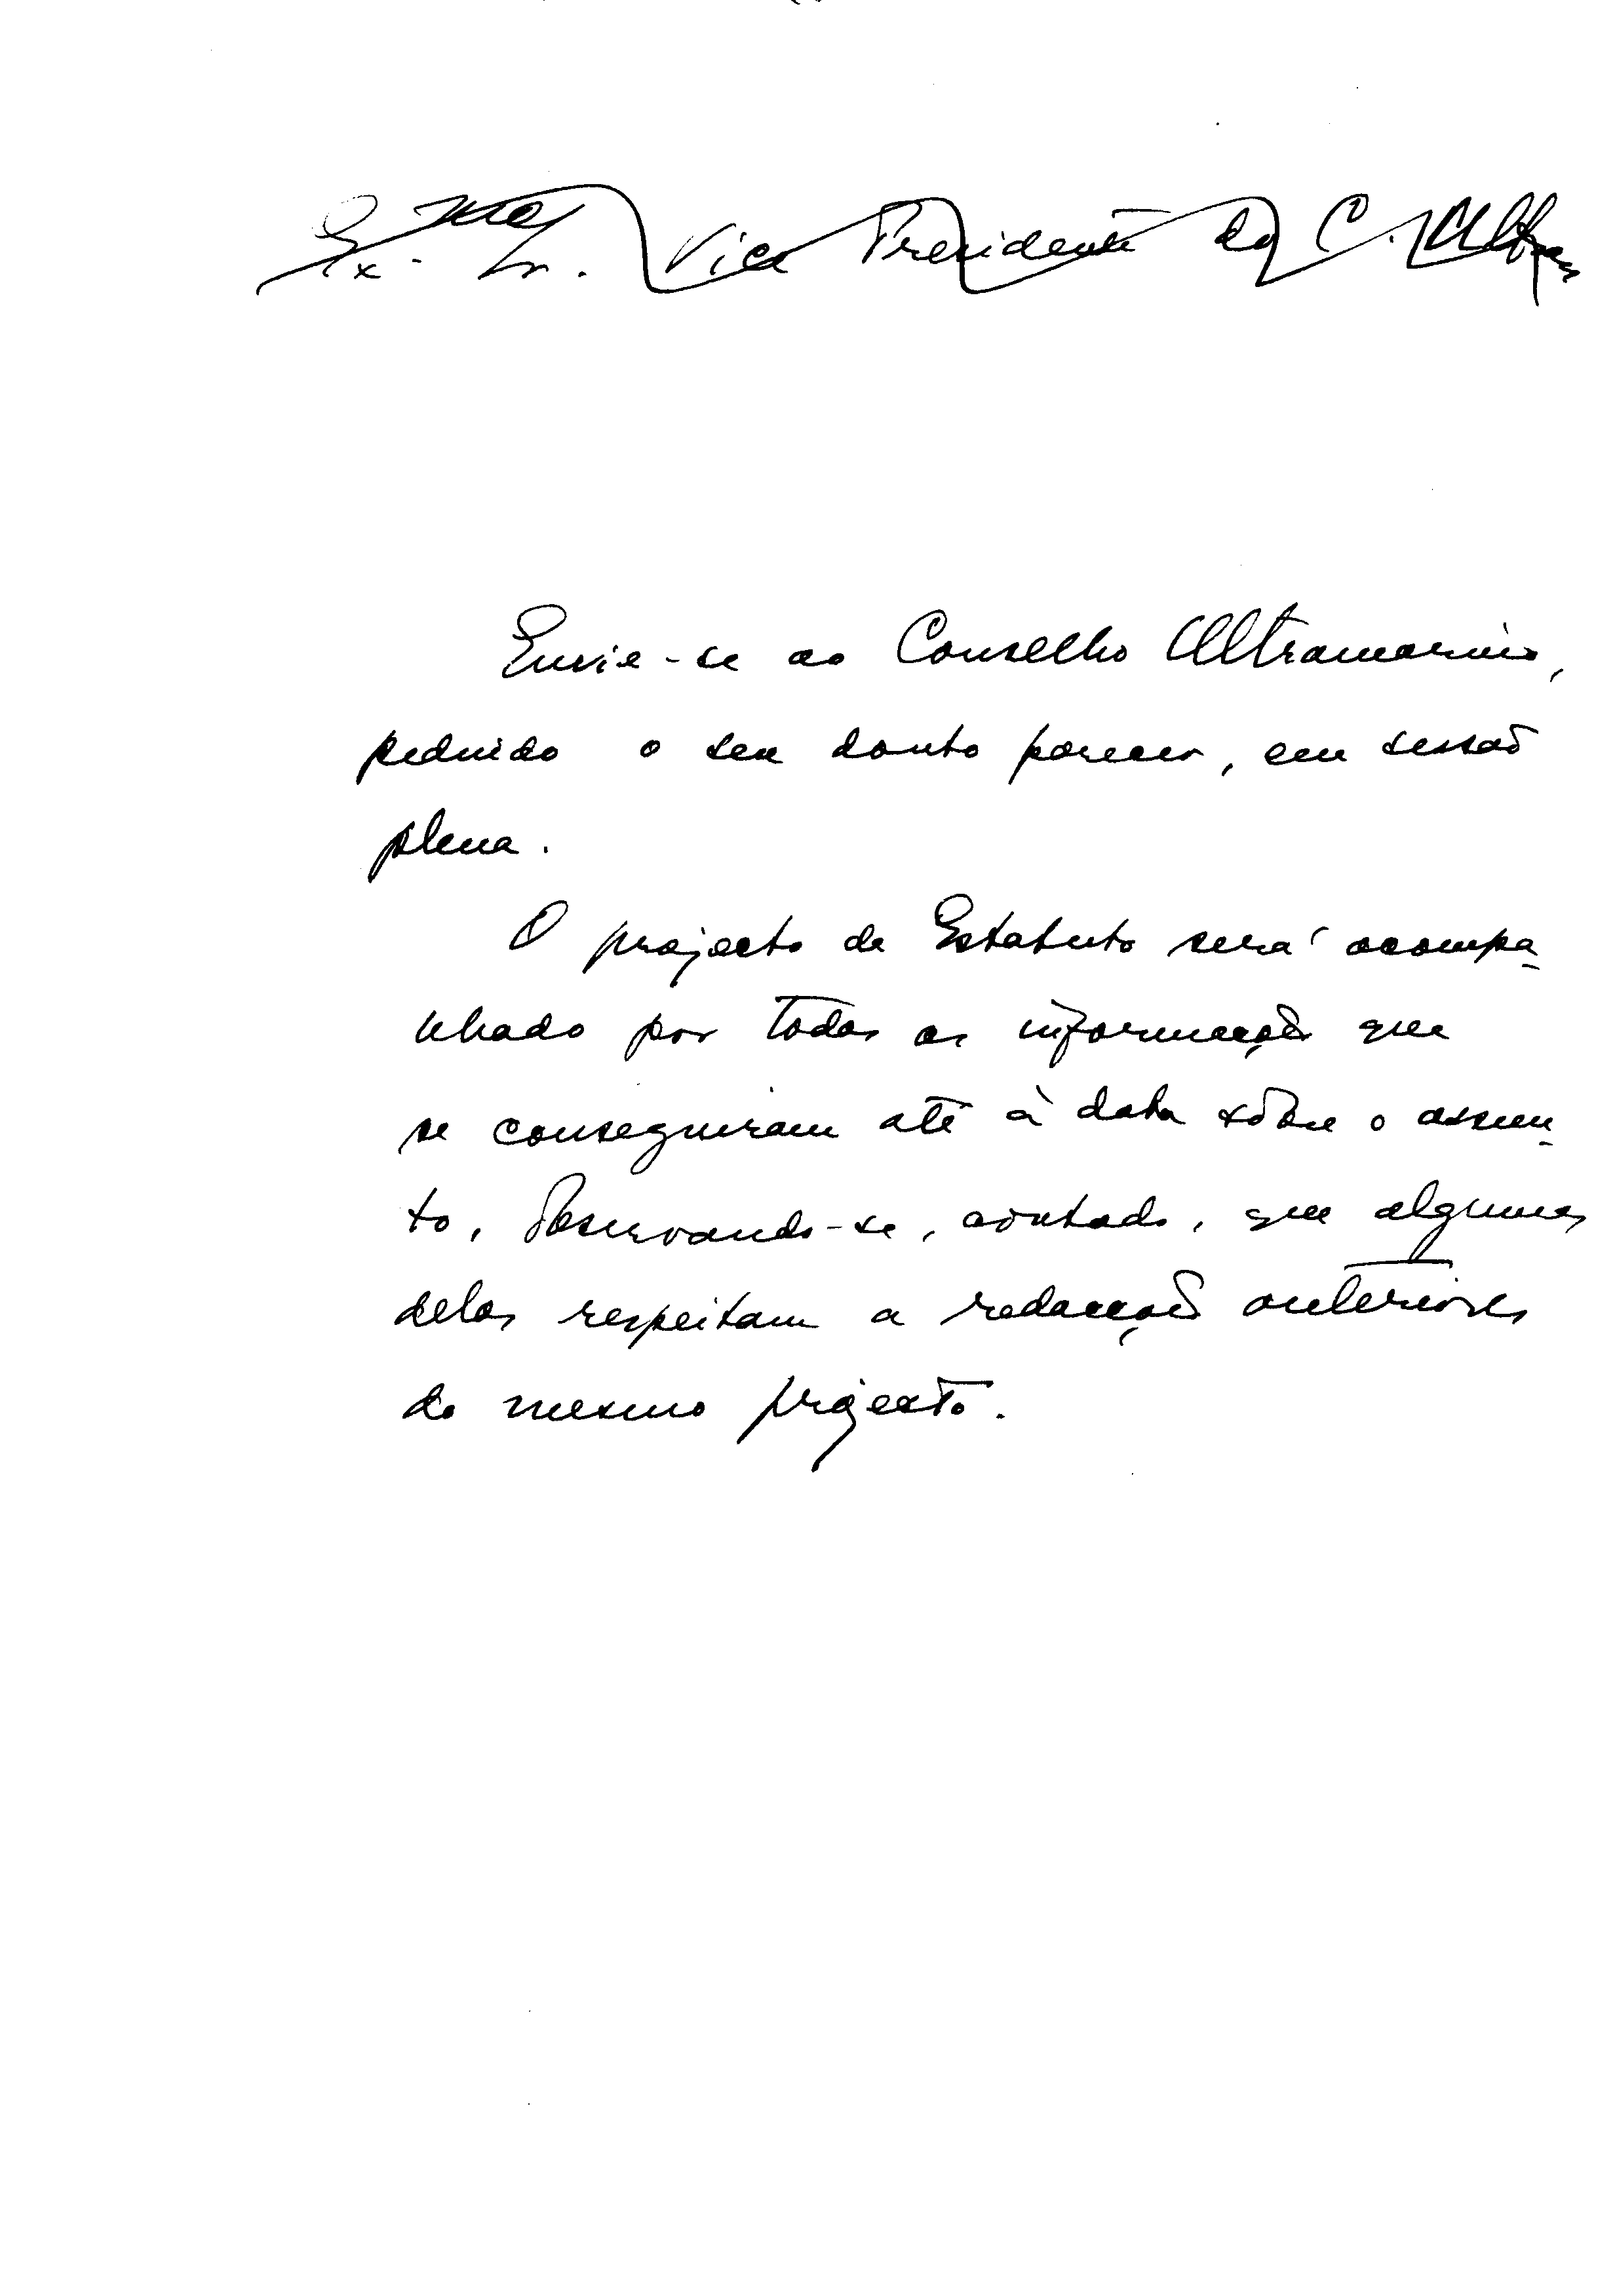 Ex.mo Sr. Vice Presidente do C. Ultram
Envie-se ao Conselho Ultramarino,
pedindo o seu douto parecer, em sessão
plena.
O projecto de Estatuto será acompa-
nhado por todas as informações que
se conseguiram até à data sôbre o assun-
to, observando-se, contudo, que algumas
delas respeitam a redacções anteriores
do mesmo projecto.